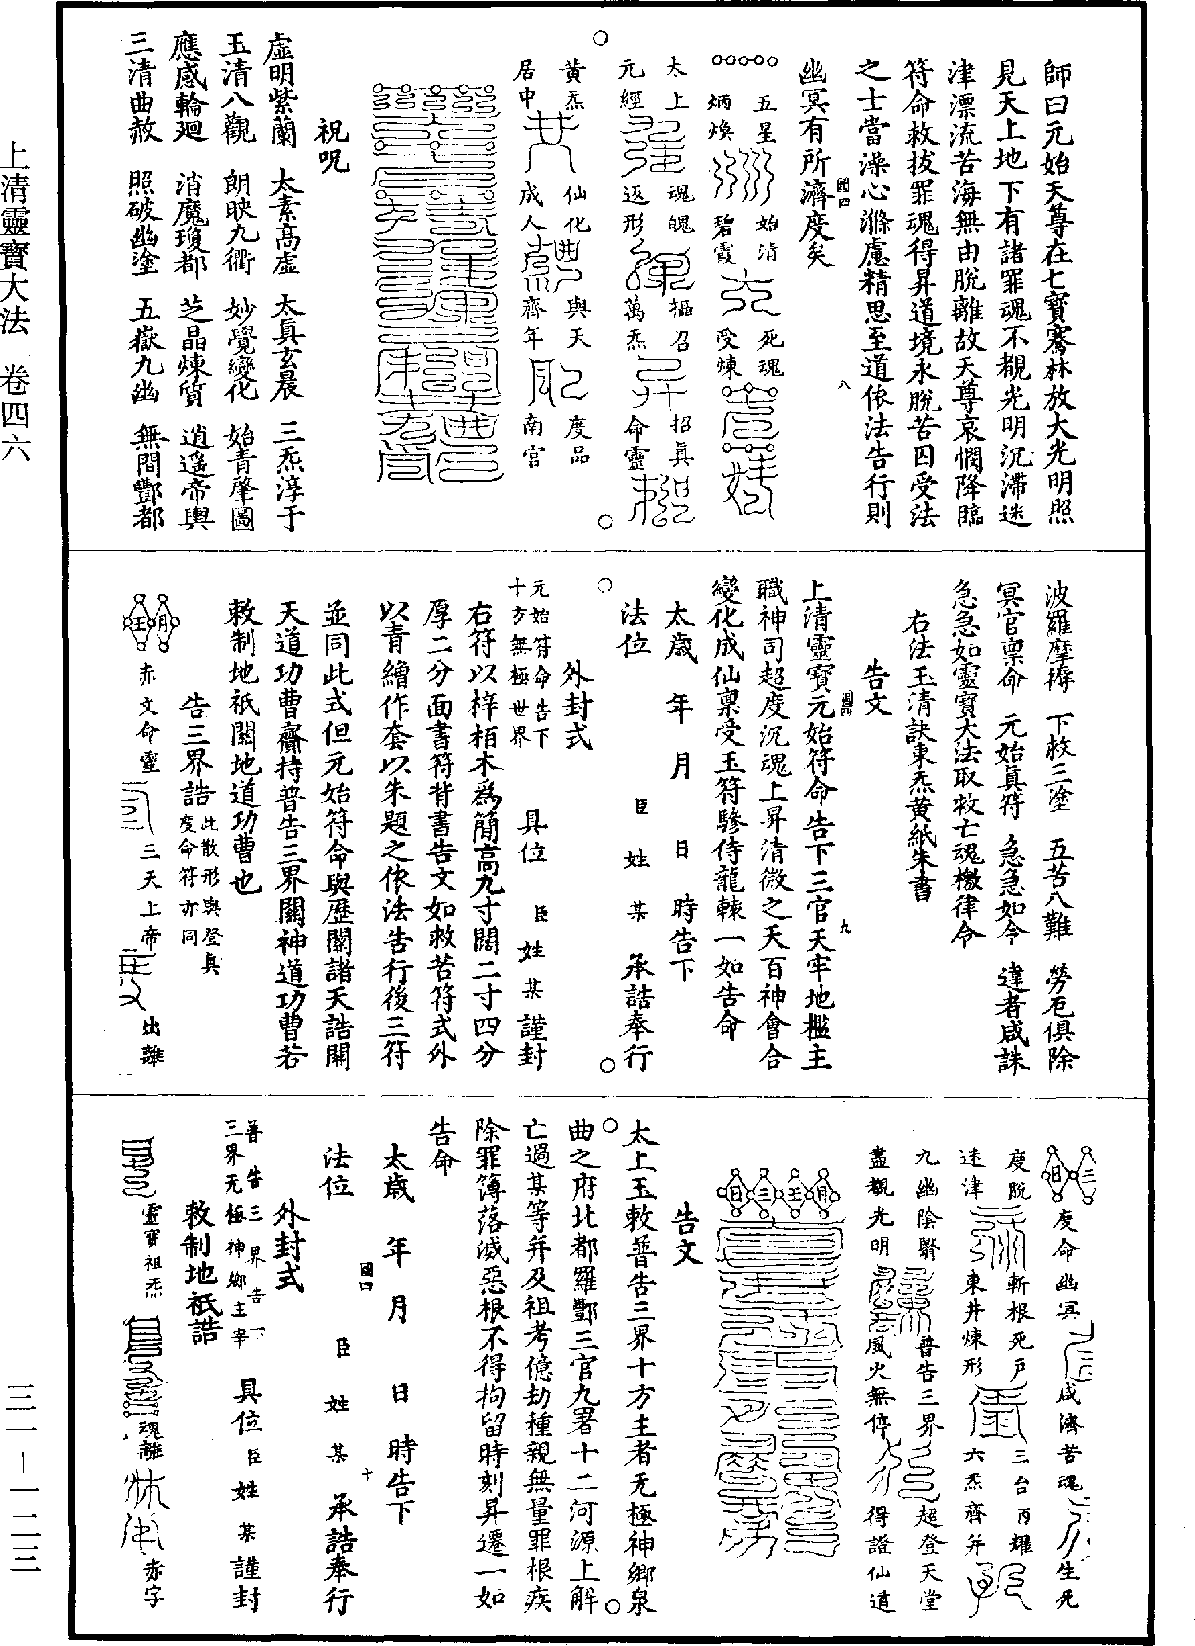 上清靈寶大法 卷四六
三一－一二三
師曰元始天尊在七寶騫林放大光明照
見天上地下有諸罪魂不覩光明沉滯迷
津漂流苦海無由脫離故天尊哀憫降臨
符命救拔罪魂得昇道境永脫苦囚受法
之士當澡心滌慮精思至道依法告行則
幽冥有所濟度矣
國四
八
五星 始清 死魂
炳煥 碧霞 受煉
太上 魂魄 攝召 招真
元經 返形 萬炁 命靈
黃炁 仙化 與天 度品
居中 成人 齊年 南宮
祝呪
虛明紫蘭 太素高虛 太真玄晨 三炁淳于
玉清八觀 朗映九衢 妙覺變化 始青肇圖
應感輪廻 消魔瓊都 芝晶煉質 逍遥帝輿
三清曲赦 照破幽塗 五嶽九幽 無間酆都
波羅摩褥 下救三塗 五苦八難 勞厄俱除
冥官禀命 元始真符 急急如今 違者咸誅
急急如靈寶大法取救亡魂檄律令
右法玉清訣東炁黃紙朱書
告文
上清靈寶元始符命告下三官天牢地檻主
職神司超度沉魂上昇清微之天百神會合
變化成仙禀受玉符驂侍龍輧一如告命
九
太歲 年 月 日 時告下
法位 臣 姓 某 承誥奉行
外封式
元始符命告下
十方無極世界 具位 臣 姓 某 謹封
右符以梓栢木爲簡高九寸闊二寸四分
厚二分面書符背書告文如救苦符式外
以青繒作套以朱題之依法告行後三符
並同此式但元始符命與歷關諸天誥關
天道功曹齎持普告三界關神道功曹若
敕制地祇關地道功曹也
告三界誥 此散形與登真
度命符亦同
月 王 赤文命靈 三天上帝 出離
三 日 度命幽冥 咸濟苦魂 生死
度脫 斬根死戶 三台丙耀
迷津 東井煉形 六炁齊并
九幽陰翳 普告三界 超登天堂
盡覩光明 風火無停 得證仙道
月 王 三 日
告文
太上玉敕普告三界十方主者无極神鄉泉
曲之府北都羅酆三官九署十二河源上解
亡過某等并及祖考億劫種親無量罪根疾
除罪簿落滅惡根不得拘留時刻昇遷一如
告命
太歲 年 月 日 時告下
國四
十
法位 臣 姓 某 承誥奉行
外封式
普告三界告下
三界无極神鄉主宰 具位 臣 姓 某 謹封
敕制地祇誥
靈寶祖炁 魂離 赤字